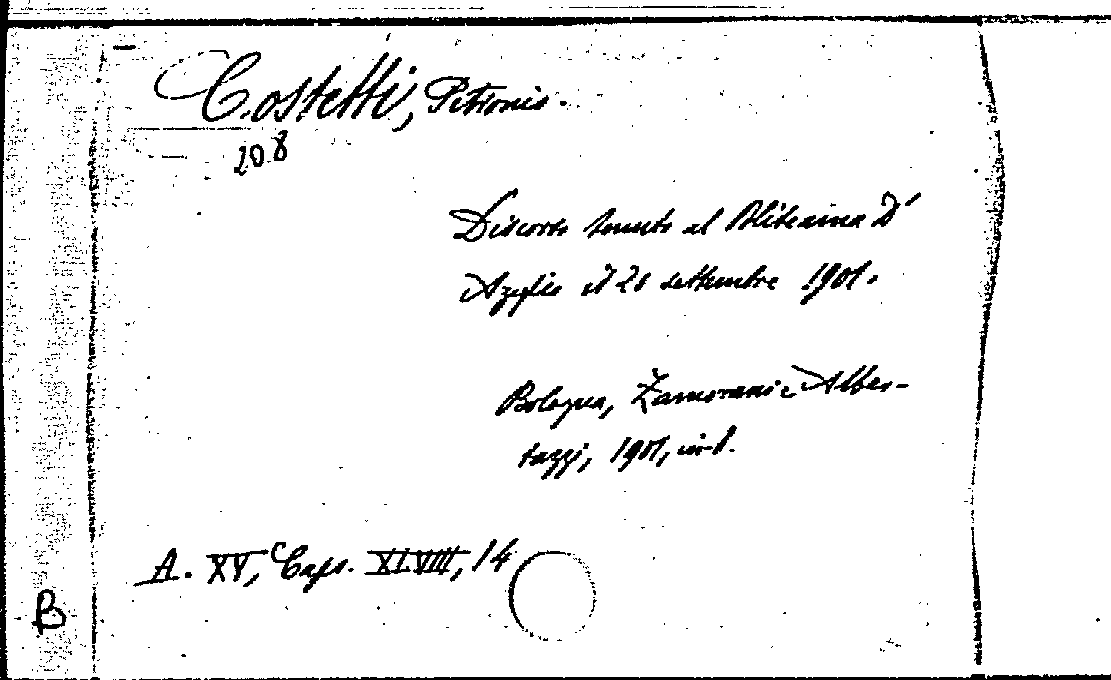 Costetti, Petronio.
208
Discorso tenuto al Politeama D'
Azeglio il 20 settembre 1901.
Bologna, Zamorani e Alber-
tazzi, 1901, in-8.
A. XV, Caps. XLVIII, 14
B